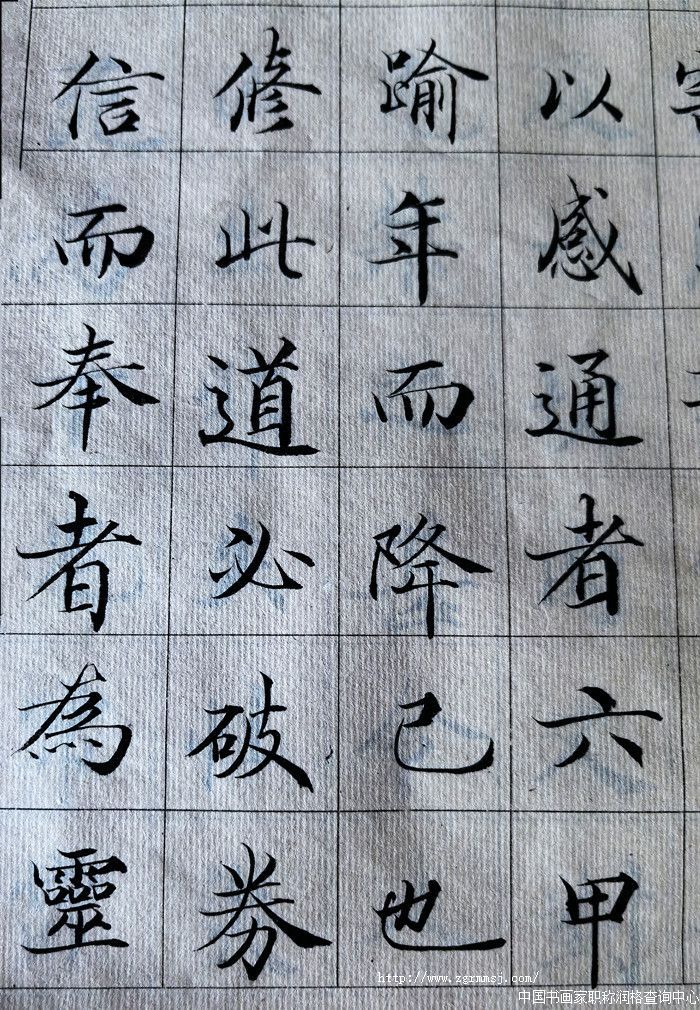 以感通者六甲
踰年而降已也
修此道必破券
信而奉者為靈
http://www.zgrmmsj.com/
中国书画家职称润格查询中心